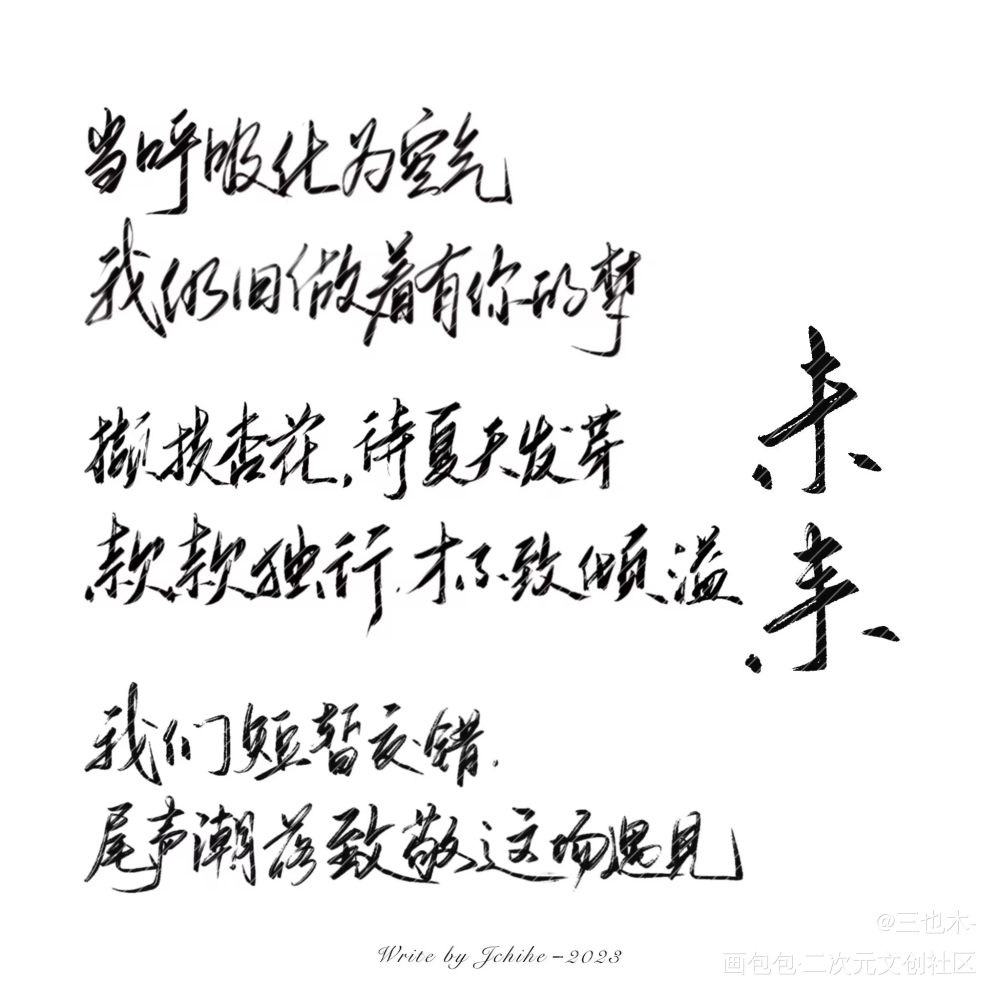 当呼吸化为空气
我仍旧做着有你的梦
撷挟杏花,待夏天发芽
款款独行.才不致倾溢
我们短暂交错.
尾声潮落致敬这场遇见
未
来
Write by Jchihe-2023
@三也木-
画包包·二次元文创社区